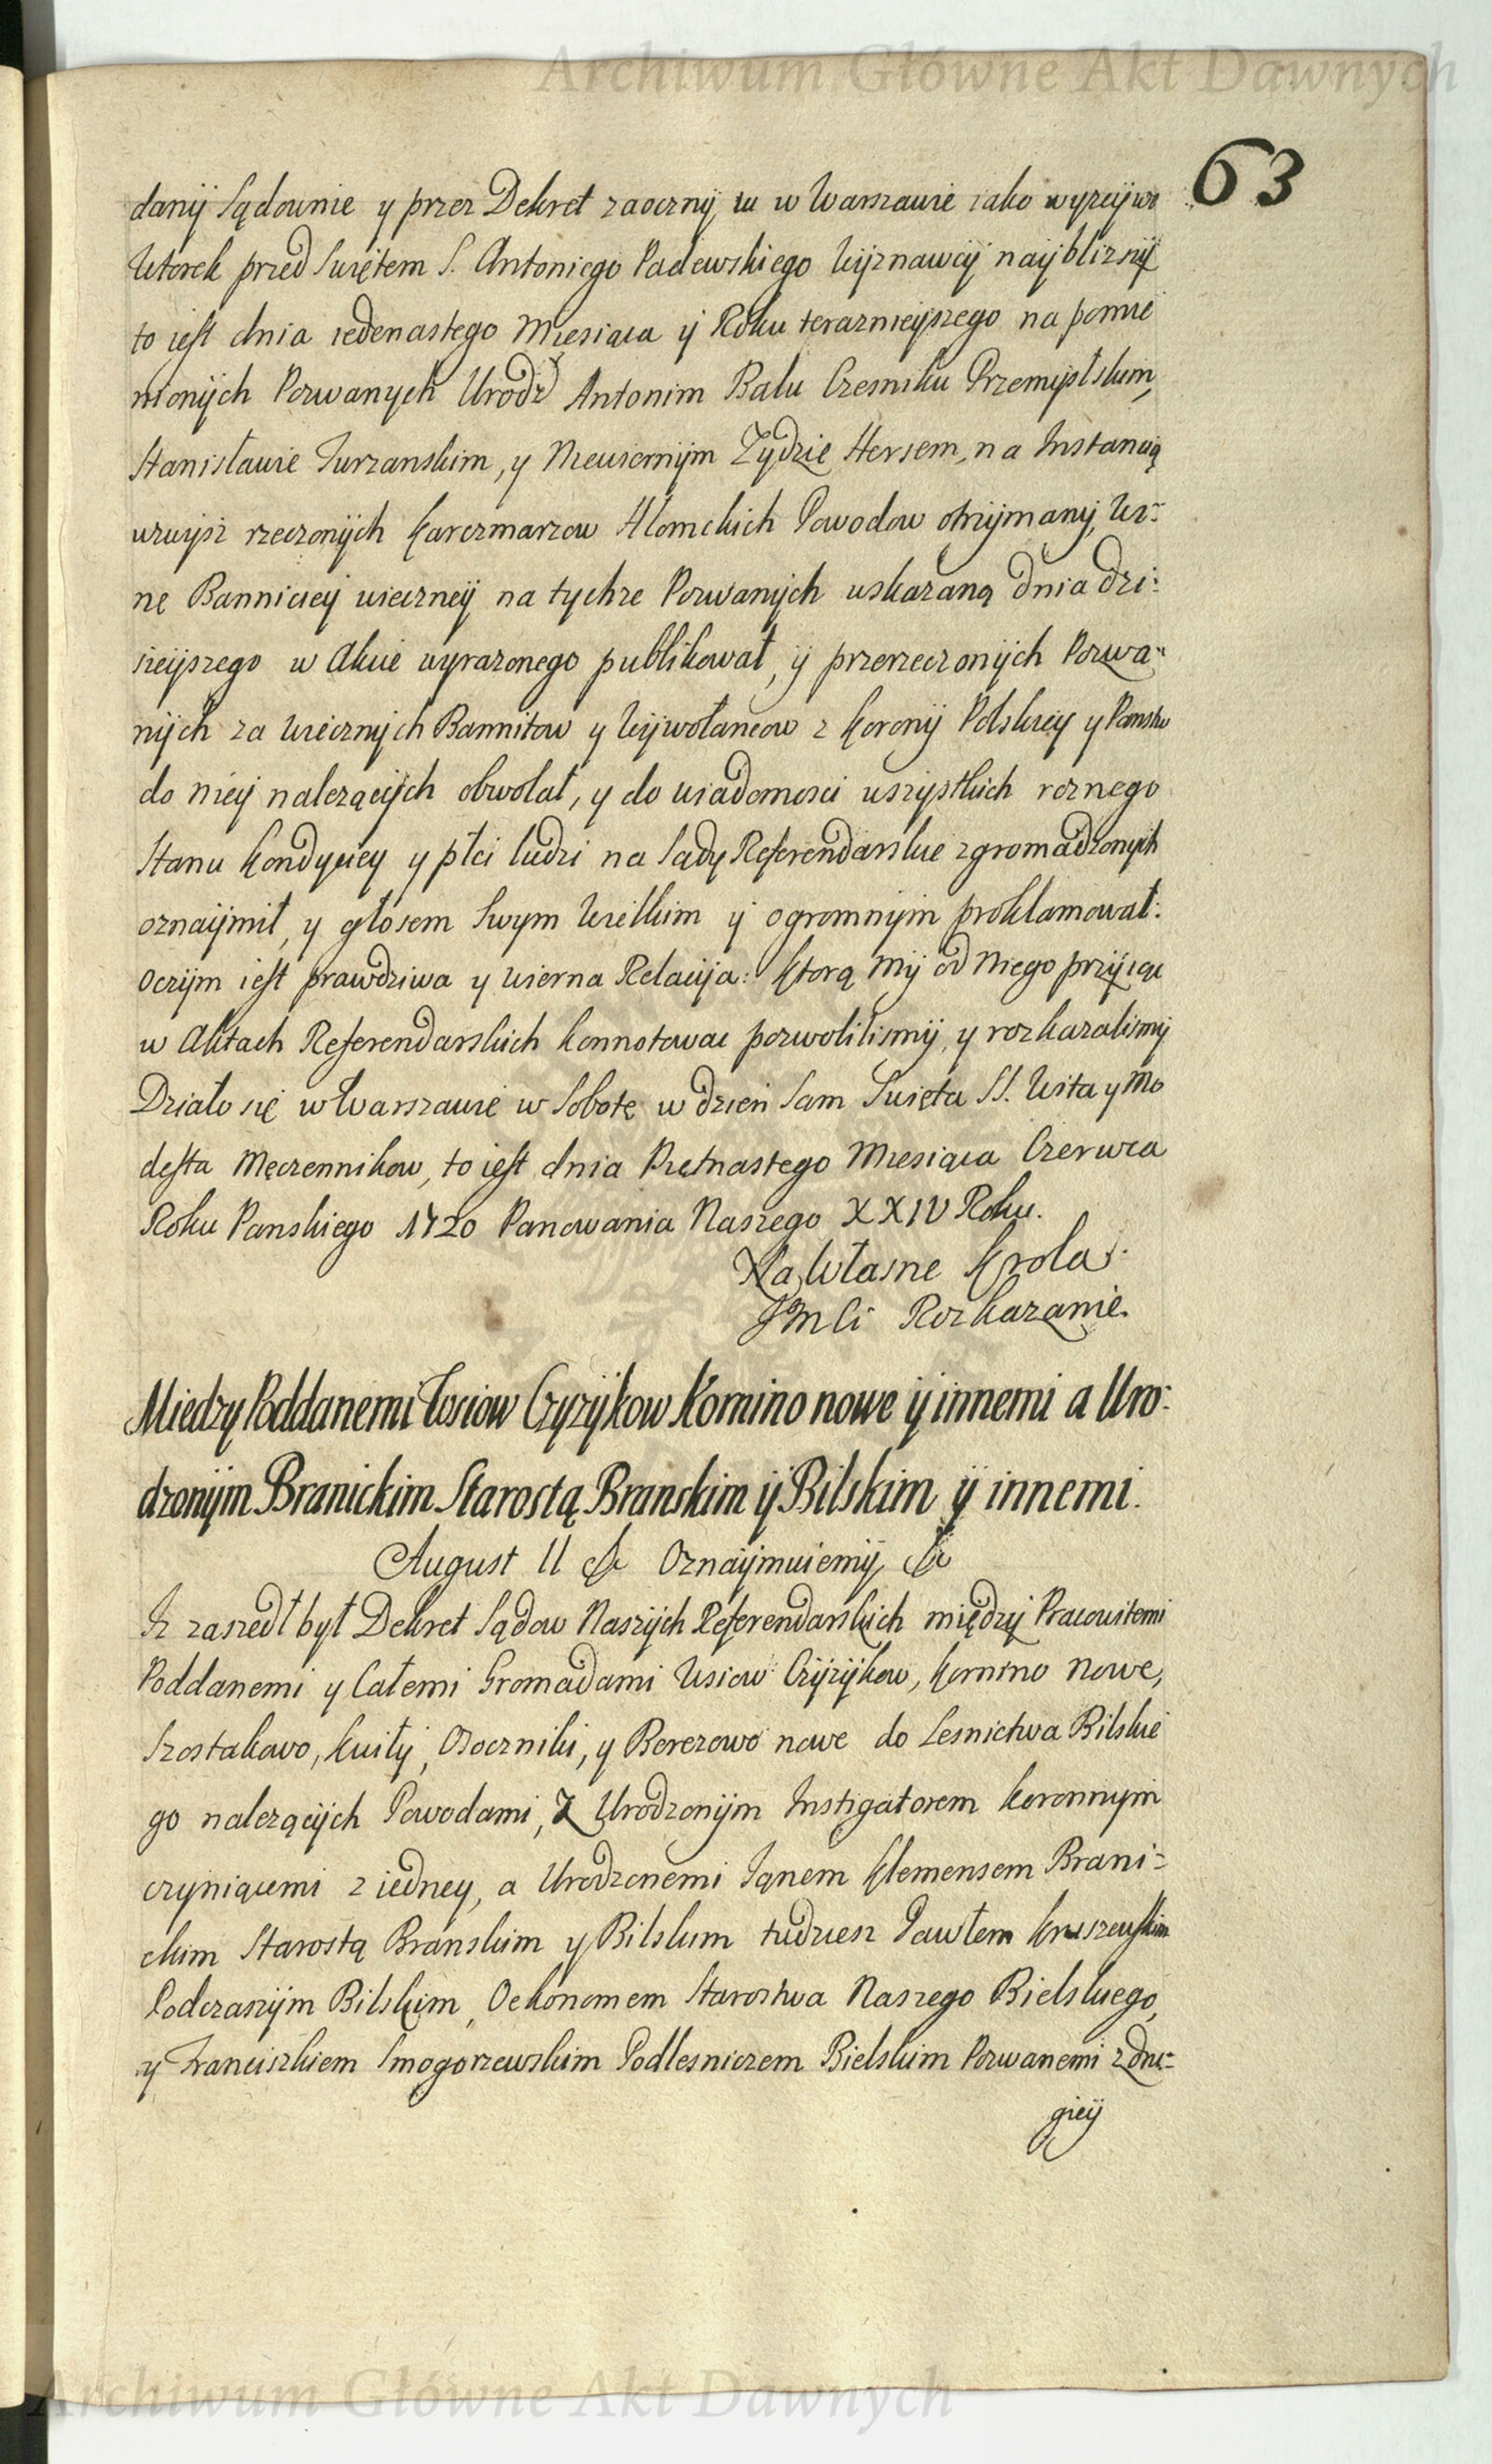 Archiwum Główne Akt Dawnych
63
danÿ Sądownie y przez Dekret zaocznÿ, tu w Warszawie iako wyzeÿ we
Wtorek przed Swiętem S. Antoniego Padewskiego Wÿznawcÿ naÿbliznÿ
to iest dnia iedenastego Miesiąca ÿ Roku teraznieÿszego na pomie
nionÿch Pozwanych Urodz Antonim Balu Czesniku Przemÿslskim,
Stanisławie Turzanskim, y Niewiernÿm Zÿdzie Hersem, na Instancÿą
wzwÿsz rzeczonÿch Karczmarzow Hlomckich Powodow otrzÿmanÿ, Wi-
nę Bannicieÿ wieczneÿ na tychze Pozwanÿch wskazaną dnia dzi-
sieÿszego w Akcie wyrazonego publikował, ÿ przerzeczonÿch Pozwa-
nÿch za wiecznÿch Bannitow y Wÿwołancow z Koronÿ Polskieÿ y Panstw
do nieÿ nalezącÿch obwołał, y do wiadomosci wszÿstkich roznego
Stanu Kondycyey y płci ludzi na Sądy Referendarskie zgromadzonych
oznaÿmił, y głosem Swym Wielkim ÿ ogromnÿm proklamował:
Oczÿm iest prawdziwa y wierna Relacÿa: Ktorą Mÿ od Niego przÿiąc
w Aktach Referendarskich konnotowac pozwolilismÿ, y rozkazalismÿ
Działo się w Warszawie w Sobotę w dzien Sam Swięta SS. Wita y Mo
desta Męczennikow, to iest dnia Piętnastego Miesiąca Czerwca
Roku Panskiego 1720 Panowania Naszego XXIV Roku.
Na Własne Krola
JMCi Rozkazanie.
Miedzy Poddanemi Wsiow Czyzÿkow Komino nowe ÿ innemi a Uro-
dzonÿm Branickim Starostą Branskim ÿ Bilskim ÿ innemi.
August II &c Oznaÿmuiemÿ, &c
Iz zaszedł był Dekret Sądow Naszÿch Referendarskich międzÿ Pracowitemi
Poddanemi y Całemi Gromadami Wsiow Czÿzÿkow, Komino Nowe,
Szostakowo, Kuiłÿ, Osoczniki, y Berezowo nowe do Lesnictwa Bilskie
go nalezącÿch Powodami, Z Urodzonÿm Instigatorem Koronnym
czyniącemi z iedney, a Urodzonemi Janem Klemensem Brani-
ckim Starostą Branskim y Bilskim tudziesz Pawłem Kruszewskim
Podczaszÿm Bilskim, Oekonomem Starostwa Naszego Bielskiego,
y Franciszkiem Smogorzewskim Podlesniczem Bielskim Pozwanemi z dru-
gieÿ
Archiwum Główne Akt Dawnych